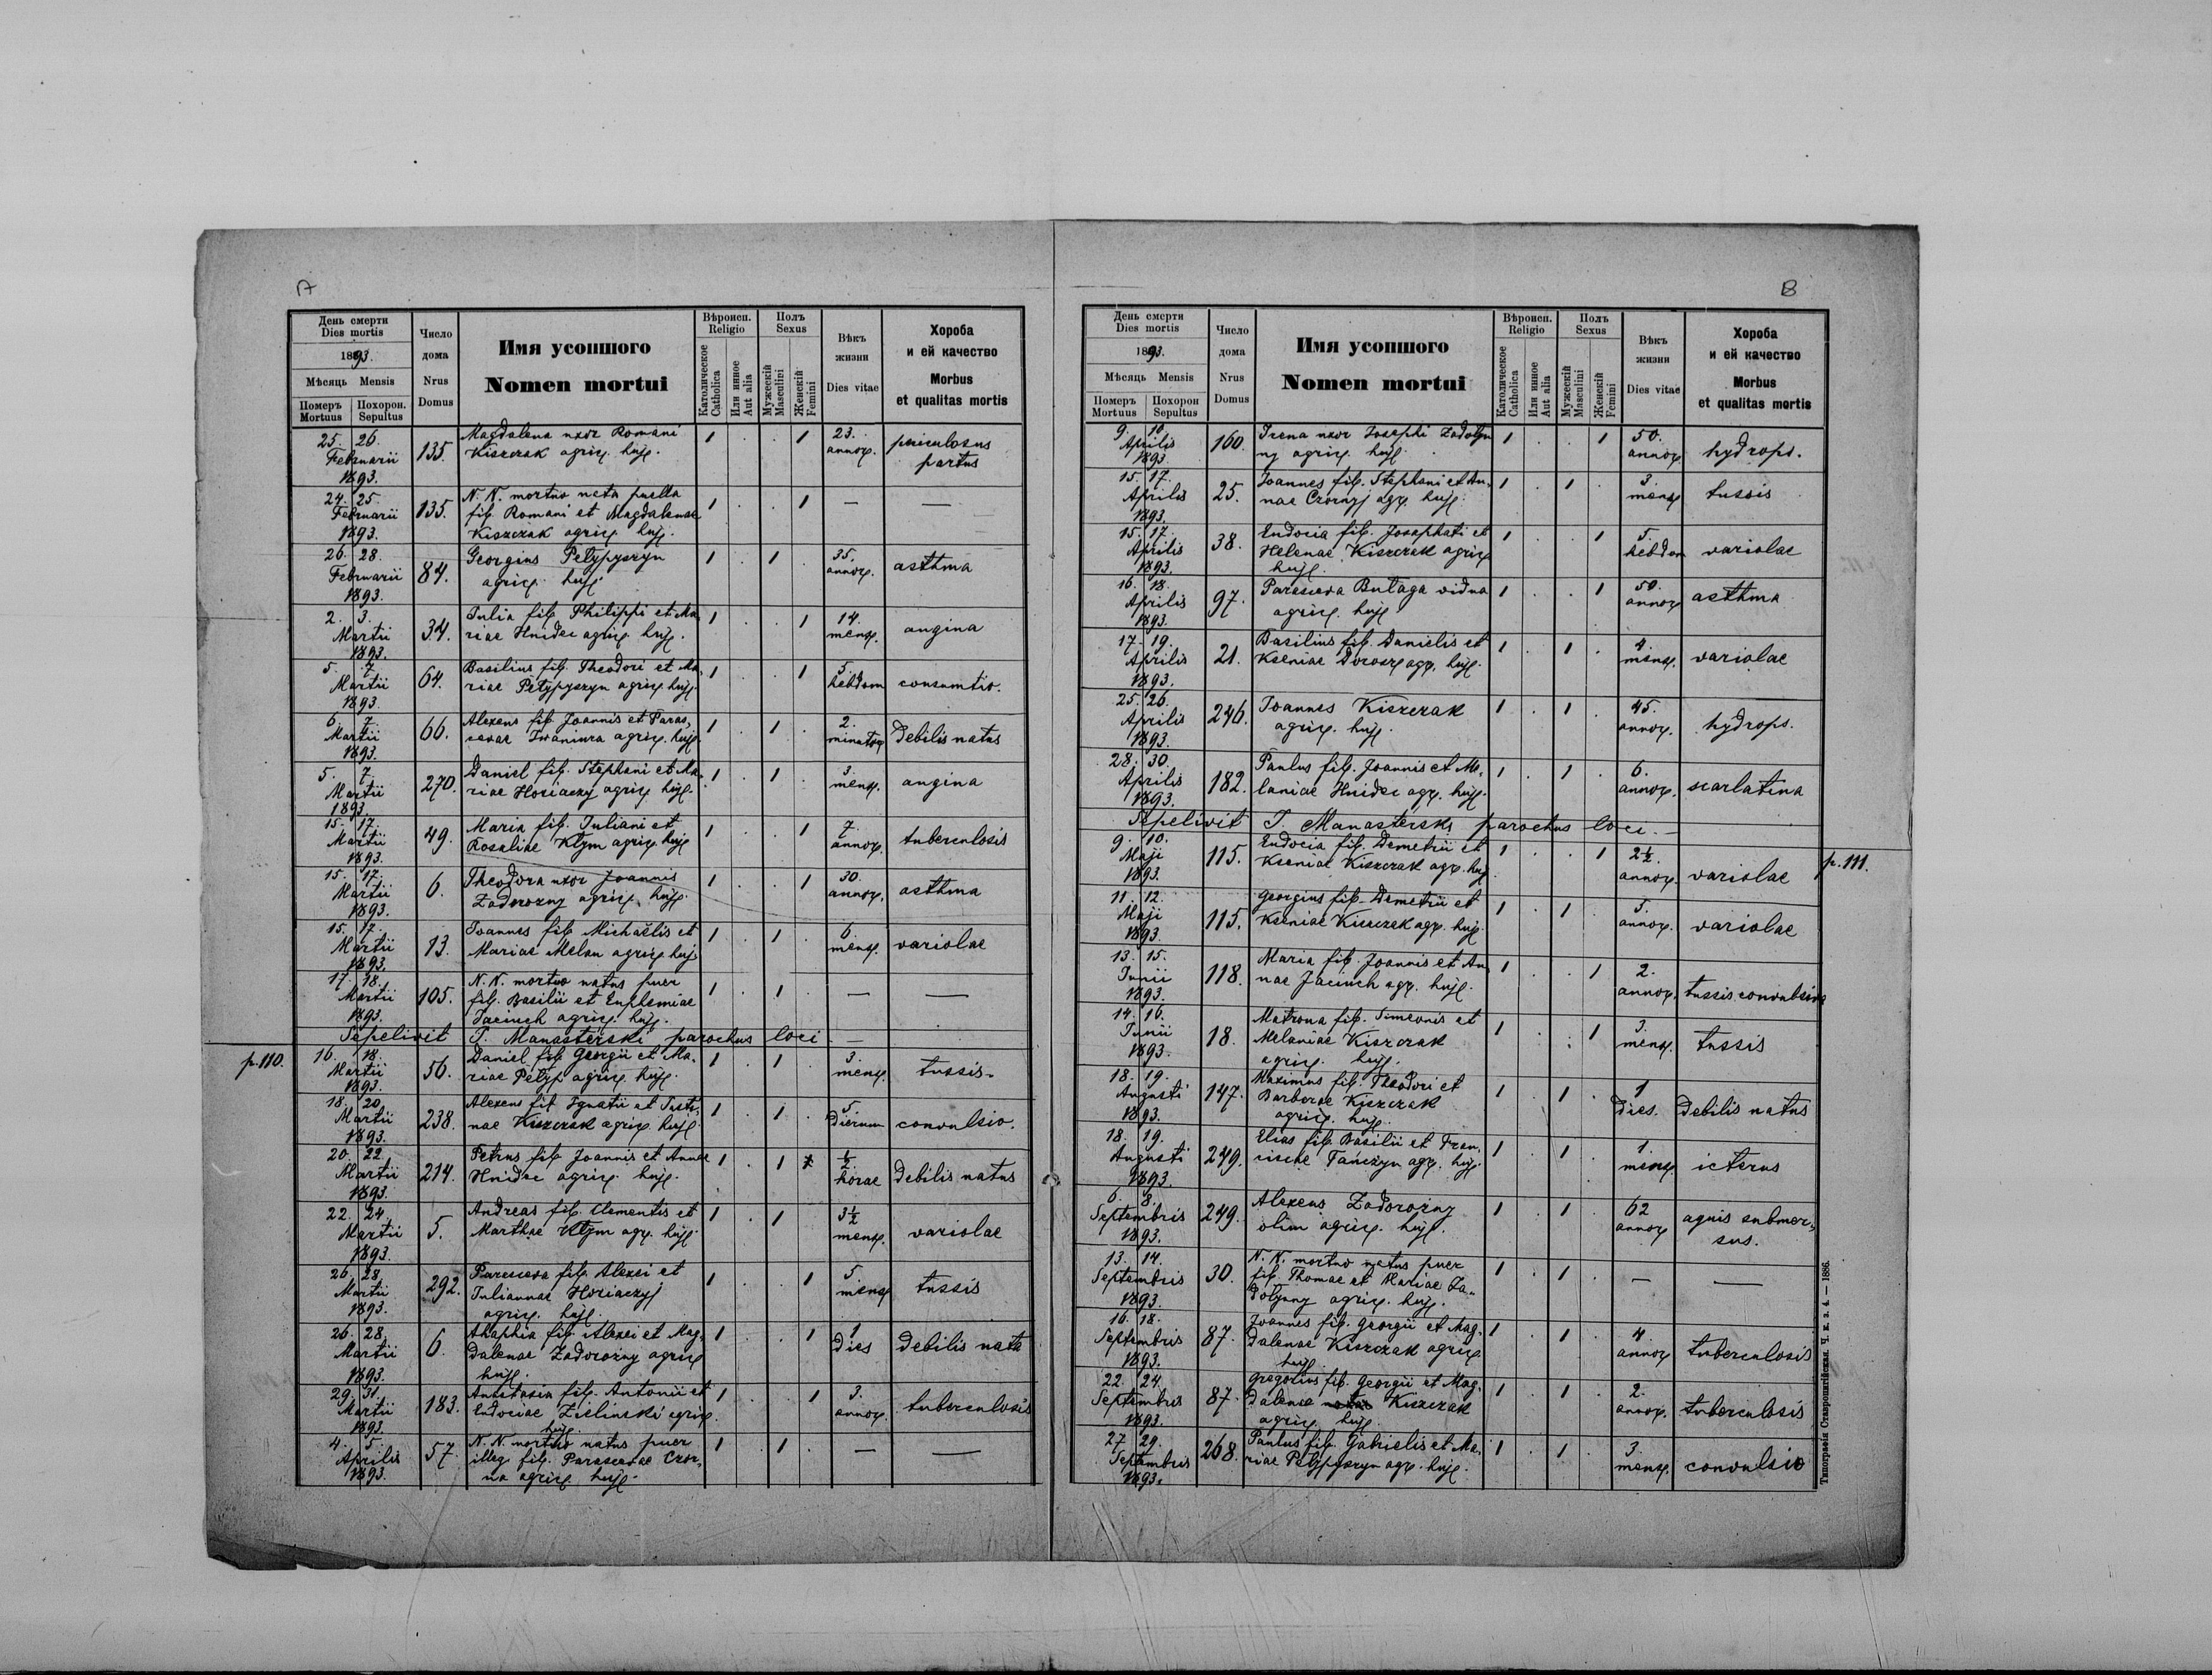 A
День смерти
Dies mortis
1893.
Мѣсяць Mensis
Померъ Похорон.
Mortuus Sepultus
Число
дома
Nrus
Domus
Имя усопшого
Nomen mortui
Вѣроисп.
Religio
Католическое
Catholica
Или инное
Aut alia
Полъ
Sexus
Мужескій
Masculini
Женскій
Femini
Вѣкъ
жизни
Dies vitae
Хороба
и ей качество
Morbus
et qualitas mortis
25. 26. Februarii 1893. 135. Magdalena uxor Romani
Kiszczak agric. huj. 1 . . 1 23. annor. periculosus
partus
24. 25. Februarii 1893. 135. N. N. mortuo nata puella
fil. Romani et Magdalenae
Kiszczak agric. huj. 1 . . 1 — —
26. 28. Februarii 1893. 84. Georgius Petypyszyn
agric. huj. 1 . 1 . 35. annor. asthma
2. 3. Martii 1893. 34. Julia fil. Philippi et Ma-
riae Hnidec agric. huj. 1 . . 1 14. mens. angina
5. 7. Martii 1893. 64. Basilius fil. Theodori et Ma-
riae Petypyszyn agric. huj. 1 . . 1 5. hebdom consumtio.
6. 7. Martii 1893. 66. Alexeus fil. Joannis et Paras-
cevae Iwaniura agric. huj. 1 . 1 . 2. minutor debilis natus
5. 7. Martii 1893. 270. Daniel fil. Stephani et Ma-
riae Horiaczy agric. huj. 1 . 1 . 3. mens. angina
15. 17. Martii 1893. 49. Maria fil. Juliani et
Rosaliae Klym agric. huj. 1 . . 1 7. annor. tuberculosis
15. 17. Martii 1893. 6. Theodora uxor Joannis
Zadorozny agric. huj. 1 . . 1 30. annor. asthma
15. 17. Martii 1893. 13. Joannes fil. Michaëlis et
Mariae Melan agric. huj. 1 . 1 . 6. mens. variolae
17. 18. Martii 1893. 105. N. N. mortuo natus puer
fil. Basilii et Euphemiae
Jacinch agric. huj. 1 . 1 . — —
Sepelivit T. Manasterski parochus loci. —
p. 110.
16. 18. Martii 1893. 56. Daniel fil. Georgii et Ma-
riae Petyp agric. huj. 1 . 1 . 3. mens. tussis.
18. 20. Martii 1893. 238. Alexeus fil. Ignatii et Justi-
nae Kiszczak agric. huj. 1 . 1 . 5. dierum convulsio.
20. 22. Martii 1893. 214. Petrus fil. Joannis et Annae
Hnidec agric. huj. 1 . 1 ½. horae debilis natus
22. 24. Martii 1893. 5. Andreas fil. Clementis et
Marthae Klym agr. huj. 1 . 1 . 3½ mens. variolae
26. 28 Martii 1893. 292. Parasceva fil. Alexei et
Juliannae Horiaczyj
agric. huj. 1 . . 1 5. mens tussis
26. 28. Martii 1893. 6. Ahaphia fil. Alexei et Mag-
dalenae Zadorożny agric
huj. 1 . . 1 1 dies debilis nata
29. 31. Martii 1893. 183. Anastasia fil. Antonii et
Eudociae Zielinski agric.
huj. 1 . . 1 3. annor. tuberculosis
4. 5. Aprilis 1893. 57. N. N. mortuo natus puer
illeg. fil. Parascevae Czor-
na agric. huj. 1 . 1 . — —
B
День смерти
Dies mortis
1893.
Мѣсяць Mensis
Померъ Похорон
Mortuus Sepultus
Число
дома
Nrus
Domus
Имя усопшого
Nomen mortui
Вѣроисп.
Religio
Католическое
Catholica
Или инное
Aut alia
Полъ
Sexus
Мужескій
Masculini
Женскій
Femini
Вѣкъ
жизни
Dies vitae
Хороба
и ей качество
Morbus
et qualitas mortis
9. 10. Aprilis 1893 160. Irena uxor Josephi Zadolyn
ny agric. huj. 1 . . 1 50. annor hydrops.
15. 17. Aprilis 1893. 25. Joannes fil. Stephani et An-
nae Czornyj agr. huj. 1 . 1 . 3. mens tussis
15. 17. Aprilis 1893. 38. Eudocia fil. Josaphati et
Helenae Kiszczak agric
huj. 1 . . 1 5. hebdom variolae
16. 18. Aprilis 1893. 97. Parasceva Butaga vidua
agric. huj. 1 . . 1 50. annor asthma
17. 19. Aprilis 1893. 21. Basilius fil. Danielis et
Kseniae Dorosz agr. huj. 1 . 1 . 4. mens. variolae
25. 26. Aprilis 1893. 246. Joannes Kiszczak
agric. huj. 1 . 1 . 45. annor. hydrops.
28. 30. Aprilis 1893. 182. Paulus fil. Joannis et Me-
laniae Hnidec agr. huj. 1 . 1 . 6. annor. scarlatina
Sepelivit T. Manasterski parochus loci. —
p. 111.
9. 10. Maji 1893. 115. Eudocia fil. Demetrii et
Kseniae Kiszczak agr. huj. 1 . . 1 2½. annor. variolae
11. 12. Maji 1893. 115. Georgius fil. Demetrii et
Kseniae Kiszczak agr. huj. 1 . 1 . 5. annor. variolae
13. 15. Junii 1893. 118. Maria fil. Joannis et An-
nae Jacinch agr. huj. 1 . . 1 2. annor. tussis convulsiva
14. 16. Junii 1893. 18. Matrona fil. Simeonis et
Melaniae Kiszczak
agric. huj. 1 . . 1 3. mens. tussis
18. 19. Augusti 1893. 147. Maximus fil. Theodori et
Barbarae Kiszczak
agric. huj. 1 . 1 . 1 dies. debilis natus
18. 19. Augusti 1893. 249. Elias fil. Basilii et Fran-
ciscae Tańczyn agr. huj. 1 . 1 . 1. mens icterus
6. 8. Septembris 1893. 249. Alexeus Zadorożny
olim agric. huj. 1 . 1 . 62 annor aquis submer-
sus.
13. 14. Septembris 1893. 30. N. N. mortuo natus puer
fil. Thomae et Mariae Za-
dolynny agric. huj. 1 . 1 . — —
16. 18. Septembris 1893. 87. Joannes fil. Georgii et Mag-
dalenae Kiszczak agric
huj. 1 . 1 . 4. annor tuberculosis
22. 24. Septembris 1893. 87. Gregorius fil. Georgii et Mag-
dalenae Kiszczak
agric. huj. 1 . 1 . 2. annor. tuberculosis
27 29. Septembris 1893. 268. Paulus fil. Gabrielis et Ma-
riae Petypyszyn agr. huj. 1 . 1 . 3. mens. convulsio
Типографія Ставропигійская. Ч. к. з. 4. — 1886.